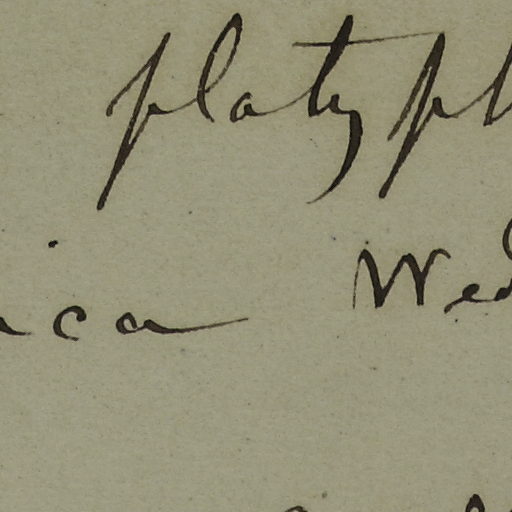 platyph
ica Wed